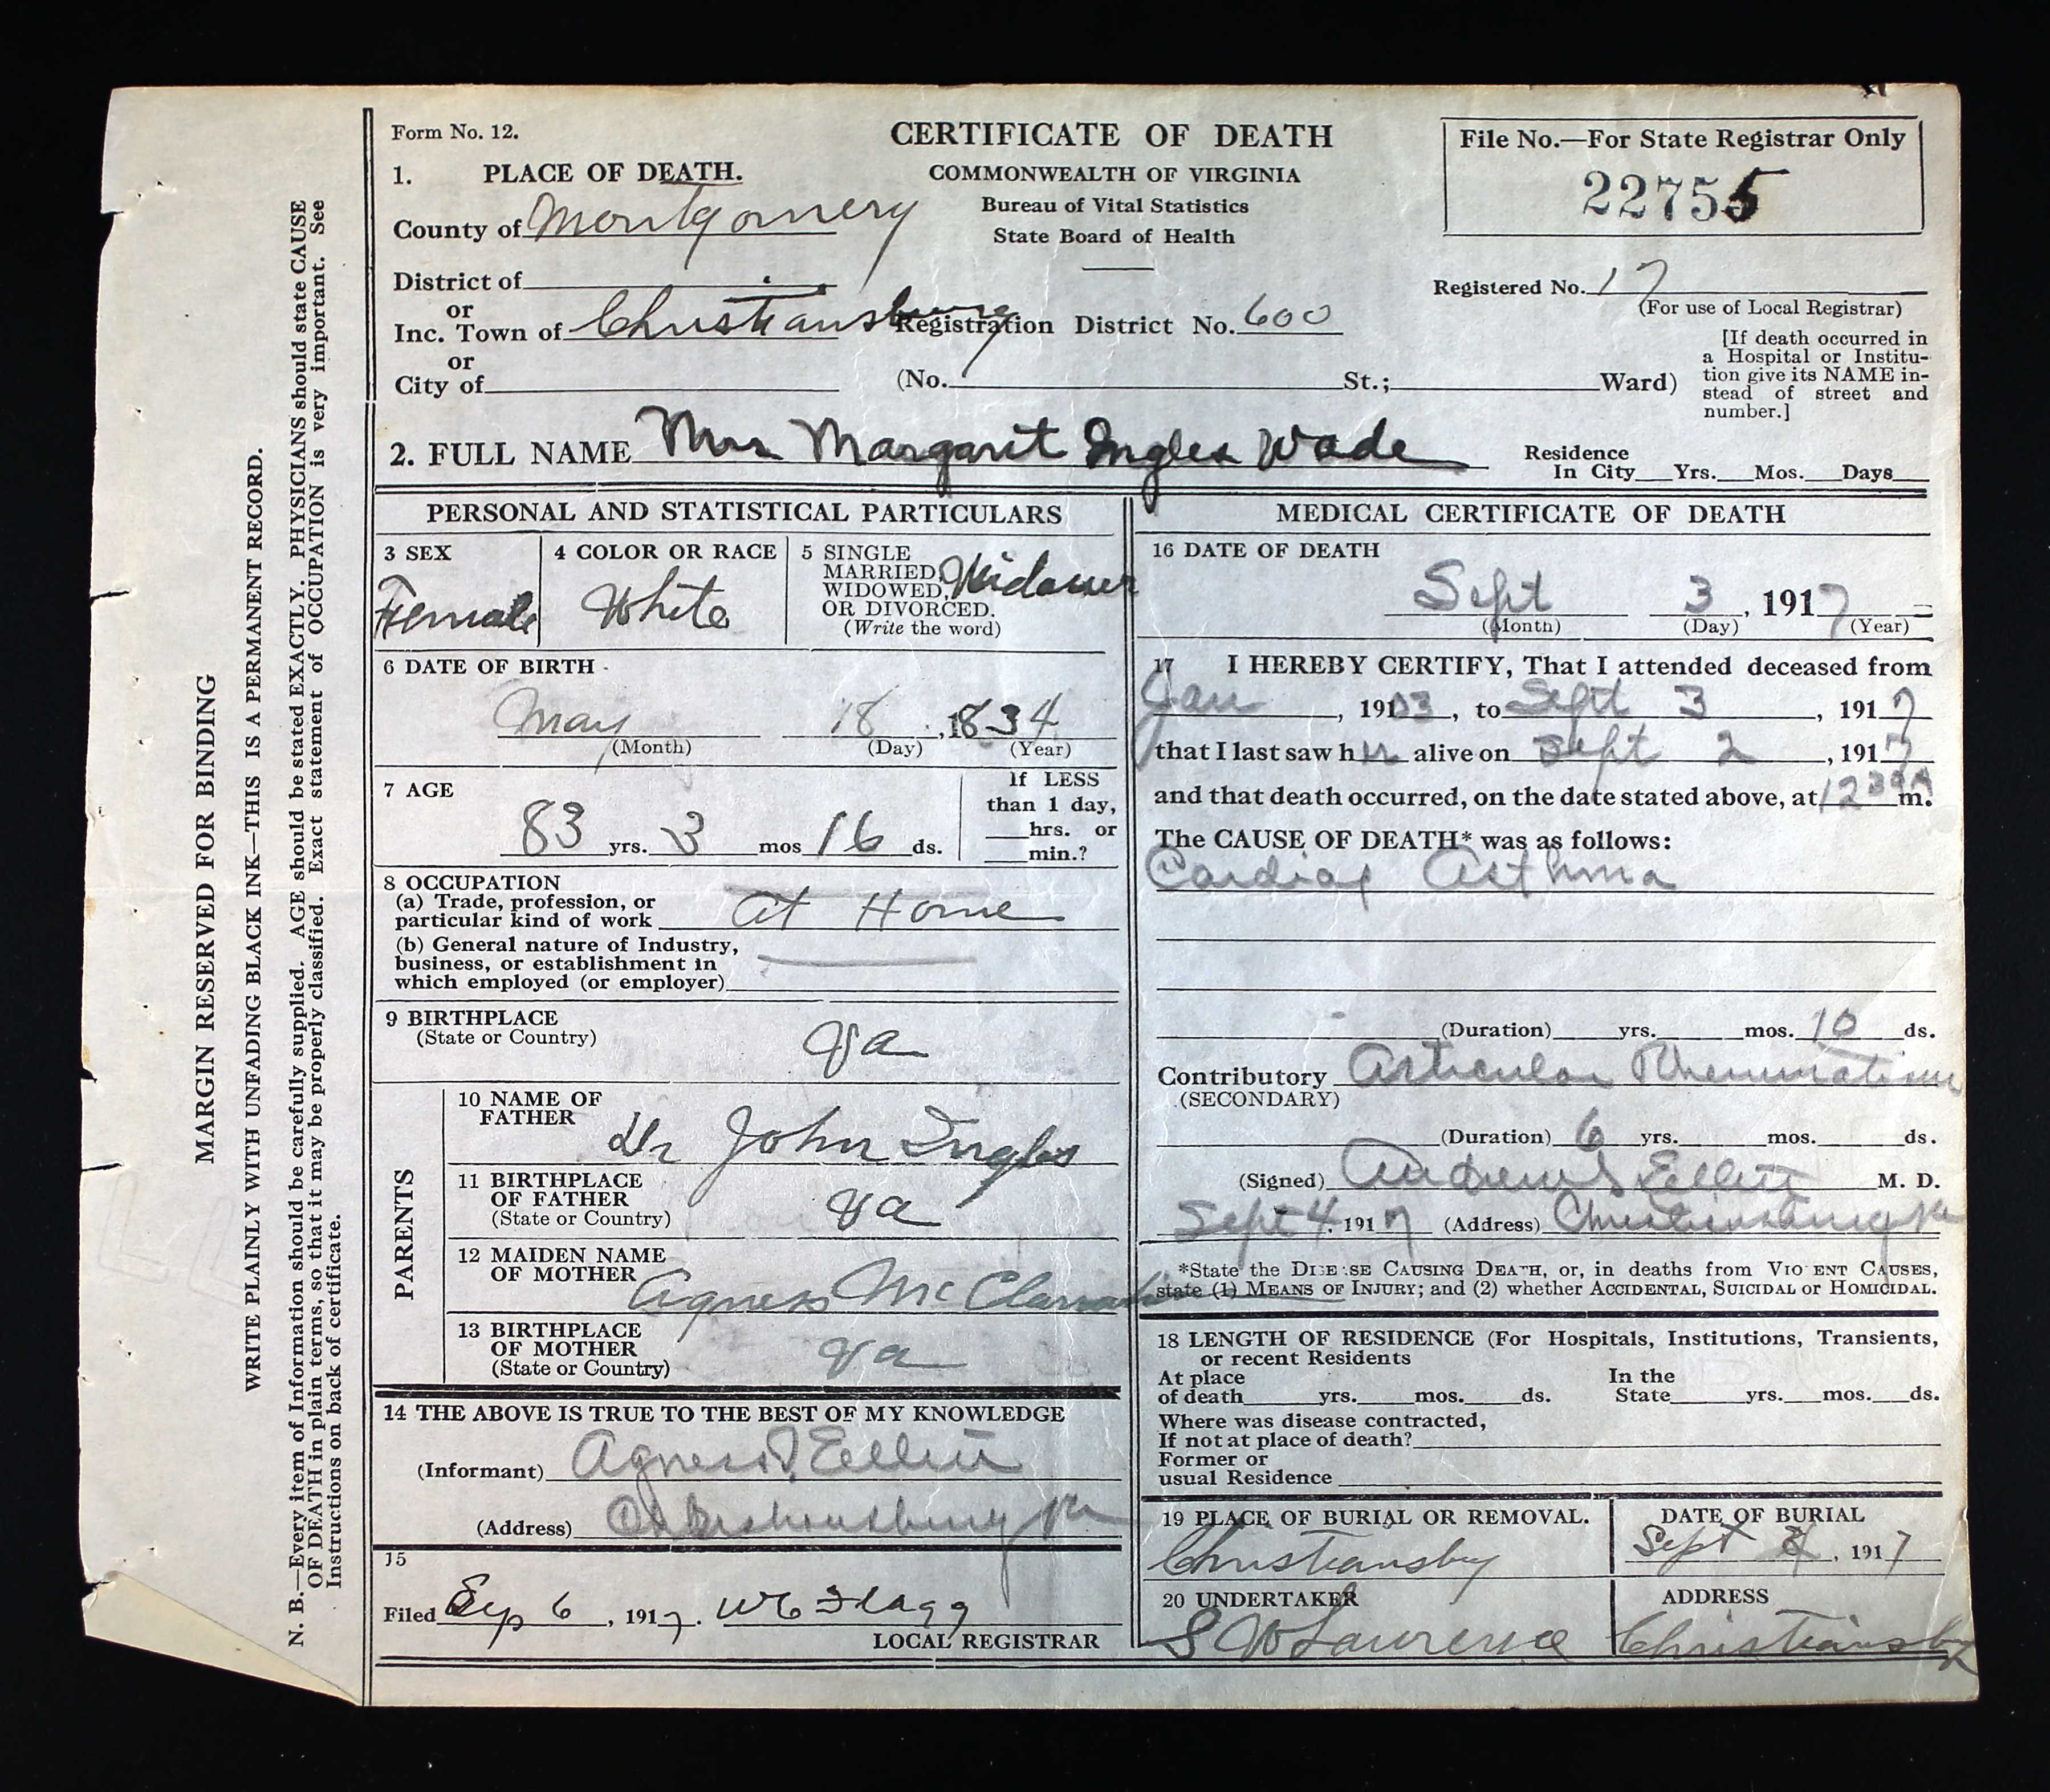 Form No. 12.
CERTIFICATE OF DEATH
COMMONWEALTH OF VIRGINIA
Bureau of Vital Statistics
State Board of Health
File No.—For State Registrar Only
22755
1. PLACE OF DEATH.
County of Montgomery
District of
or
Inc. Town of Christiansburg
Registration District No. 600
or
City of
(No. St.; Ward)
Registered No. 17
(For use of Local Registrar)
[If death occurred in
a Hospital or Institu-
tion give its NAME in-
stead of street and
number.]
2. FULL NAME Mrs Margaret Ingles Wade
Residence
In City Yrs. Mos. Days
PERSONAL AND STATISTICAL PARTICULARS
3 SEX
Female
4 COLOR OR RACE
White
5 SINGLE
MARRIED,
WIDOWED,
OR DIVORCED.
(Write the word)
Widower
6 DATE OF BIRTH
May 18, 1834
(Month) (Day) (Year)
7 AGE
83 yrs. 3 mos 16 ds.
If LESS
than 1 day,
hrs. or
min.?
8 OCCUPATION
(a) Trade, profession, or
particular kind of work At Home
(b) General nature of Industry,
business, or establishment in
which employed (or employer)
9 BIRTHPLACE
(State or Country)
Va
PARENTS
10 NAME OF
FATHER
Dr John Ingles
11 BIRTHPLACE
OF FATHER
(State or Country)
Va
12 MAIDEN NAME
OF MOTHER
Agness
13 BIRTHPLACE
OF MOTHER
(State or Country)
Va
14 THE ABOVE IS TRUE TO THE BEST OF MY KNOWLEDGE
(Informant) Agnes I. Ellett
(Address) Christiansburg Va
15
Filed Sep 6, 1917. W C Flagg
LOCAL REGISTRAR
MEDICAL CERTIFICATE OF DEATH
16 DATE OF DEATH
Sept 3, 1917
(Month) (Day) (Year)
17 I HEREBY CERTIFY, That I attended deceased from
Jan, 1903, to Sept 3, 1917
that I last saw her alive on Sept 2, 1917
and that death occurred, on the date stated above, at 12 30 A m.
The CAUSE OF DEATH* was as follows:
Cardiac Asthma
(Duration) yrs. mos. 10 ds.
Contributory Articular Rheumatism
(SECONDARY)
(Duration) 6 yrs. mos. ds.
(Signed) Andrew S Ellett M. D.
Sept 4, 1917 (Address) Christiansburg Va
*State the DISEASE CAUSING DEATH, or, in deaths from VIOLENT CAUSES,
state (1) MEANS OF INJURY; and (2) whether ACCIDENTAL, SUICIDAL or HOMICIDAL.
18 LENGTH OF RESIDENCE (For Hospitals, Institutions, Transients,
or recent Residents
At place
of death yrs. mos. ds.
In the
State yrs. mos. ds.
Where was disease contracted,
If not at place of death?
Former or
usual Residence
19 PLACE OF BURIAL OR REMOVAL.
Christiansbrg
DATE OF BURIAL
Sept, 1917
20 UNDERTAKER
S W Lawrence
ADDRESS
Christiansbg
MARGIN RESERVED FOR BINDING
WRITE PLAINLY WITH UNFADING BLACK INK—THIS IS A PERMANENT RECORD.
N. B.—Every item of Information should be carefully supplied. AGE should be stated EXACTLY. PHYSICIANS should state CAUSE
OF DEATH in plain terms, so that it may be properly classified. Exact statement of OCCUPATION is very important. See
Instructions on back of certificate.